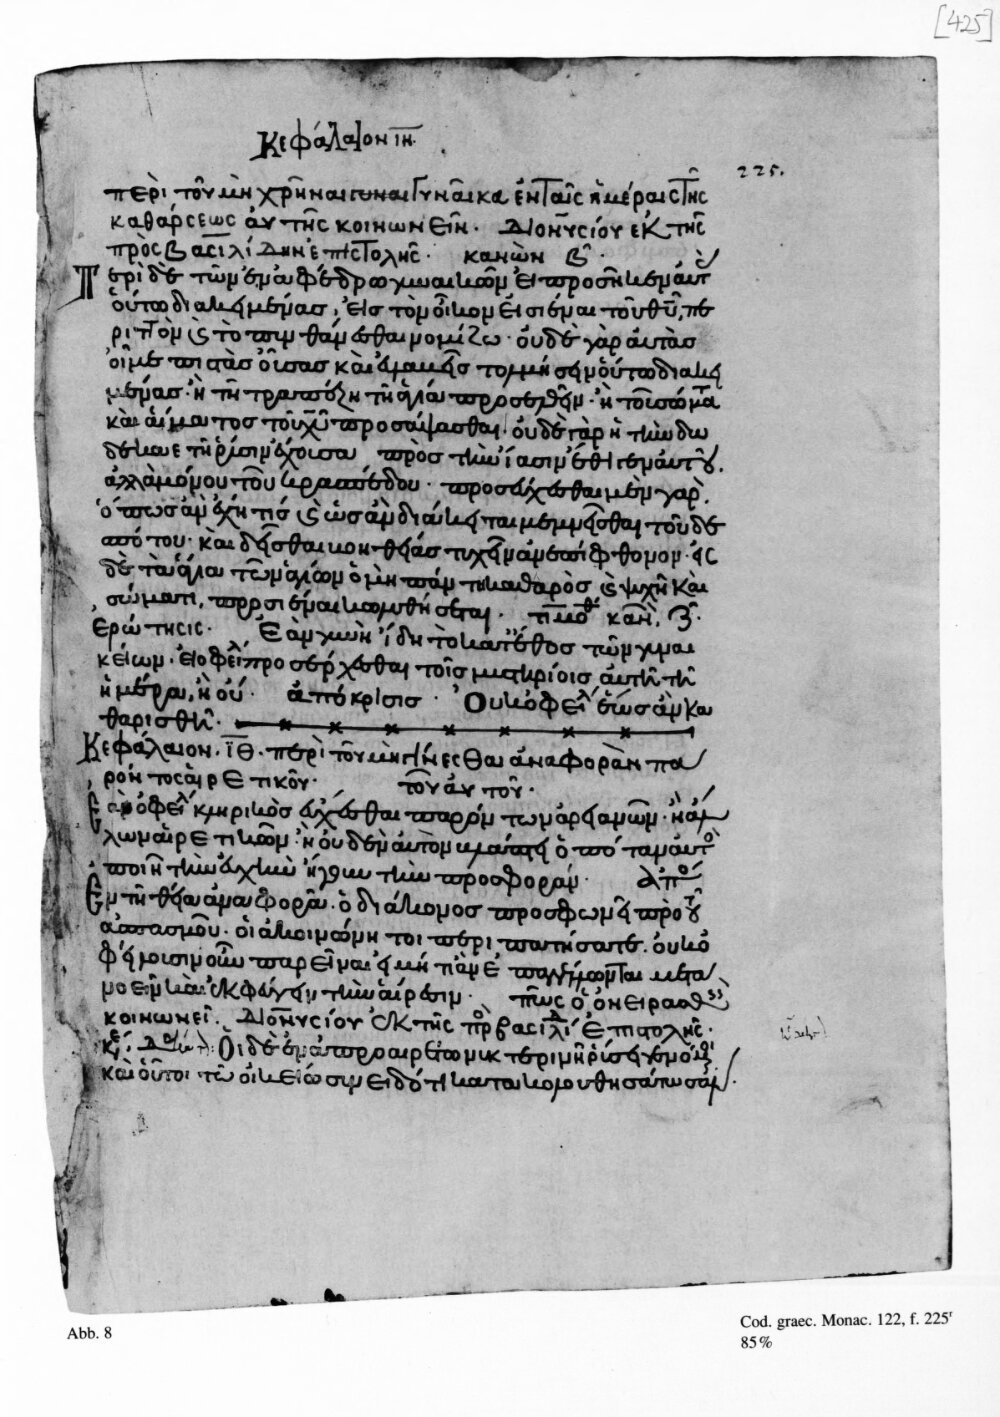 [425]
Κεφάλαιον ιη.
225.
περὶ τοῦ μὴ χρῆναι γυναῖκα ἐν ταῖς ἡμέραις τῆς
καθάρσεως αὐτῆς κοινωνεῖν. Διονυσίου ἐκ τῆς
πρὸς Βασιλίδην ἐπιστολῆς. κανὼν β.
Περὶ δὲ τῶν ἐν ἀφέδρω γυναικῶν εἰ προσῆκεν αὐτ
οὕτω διακειμένας, εἰς τὸν οἶκον εἰσιέναι τοῦ θῦ, πε
ριττὸν τὸ πυνθάνεσθαι νομίζω. οὐδὲ γὰρ αὐτὰς
οἶμαι πιστὰς οὔσας καὶ εὐλαβεῖς τολμήσειν οὕτω διακει
μένας. ἢ τῆ τραπέζη τῆ ἁγία προσελθεῖν. ἢ τοῦ σώματ
καὶ αἵματος τοῦ χῦ προσάψασθαι. οὐδὲ γὰρ ἡ τὴν δω
δεκαετῆ ῥύσιν ἔχουσα πρὸς τὴν ἴασιν ἔθιγεν αὐτοῦ.
ἀλλὰ μόνου τοῦ κρασπέδου. προσεύχεσθαι μὲν γὰρ,
ὅπως ἂν ἔχη τις ὡς ἂν διάκειται μεμνῆσθαι τοῦ δε
σπότου. καὶ δεῖσθαι βοηθείας τυχεῖν ἀνεπίφθονον. εἰς
δὲ τὰ ἅγια τῶν ἁγίων ὁ μὴ πάντη καθαρὸς ψυχῆ καὶ
σώματι, προσιέναι κωλυθήσεται. τιμοθ καν. ζ.
Ἐρώτησις. Ἐὰν γυνὴ ἴδη τὸ κατ' ἔθος τῶν γυναι
κείων. εἰ ὀφείλ προσέρχεσθαι τοῖς μυστηρίοις αὐτῆ τῆ
ἡμέρα, ἢ οὔ. ἀπόκρισις. Οὐκ ὀφείλ ἕως ἂν κα
θαρισθῆ.
Κεφάλαιον. ιθ. περὶ τοῦ μὴ γίνεσθαι ἀναφορὰν πα
ρόντος αἱρετικοῦ. τοῦ αὐτοῦ.
Ἐὰν ὀφείλ κληρικὸς εὔχεσθαι παρόντων ἀρειανῶν. ἢ ἄλ
λων αἱρετικῶν. ἢ οὐδὲν αὐτὸν βλάπτει ὁπόταν αὐτὸ
ποιῆ τὴν εὐχὴν ἤγουν τὴν προσφοράν. ἀπο
Ἐν τῆ θεία ἀναφορᾶ. ὁ διάκονος προσφωνεῖ πρὸ τοῦ
ἀσπασμοῦ. οἱ ἀκοινώνητοι περιπατήσατε. οὐκ ὀ
φείλουσιν οὖν παρεῖναι εἰ μὴ τι ἂν ἐπαγγέλωνται μετα
νοεῖν καὶ ἐκφεύγειν τὴν αἵρεσιν. πῶς ὁ ὀνειρασθεὶς
κοινωνεῖ. Διονυσίου ἐκ τῆς πρ Βασιλί ἐπιστολῆς.
Οἱ δὲ ἐν ἀπροαιρέτω νυκτερινῆ ῥύσει γενόμ
καὶ οὗτοι τῶ οἰκείω συνειδότι κατακολουθησάτωσαν.
Abb. 8
Cod. graec. Monac. 122, f. 225r
85%